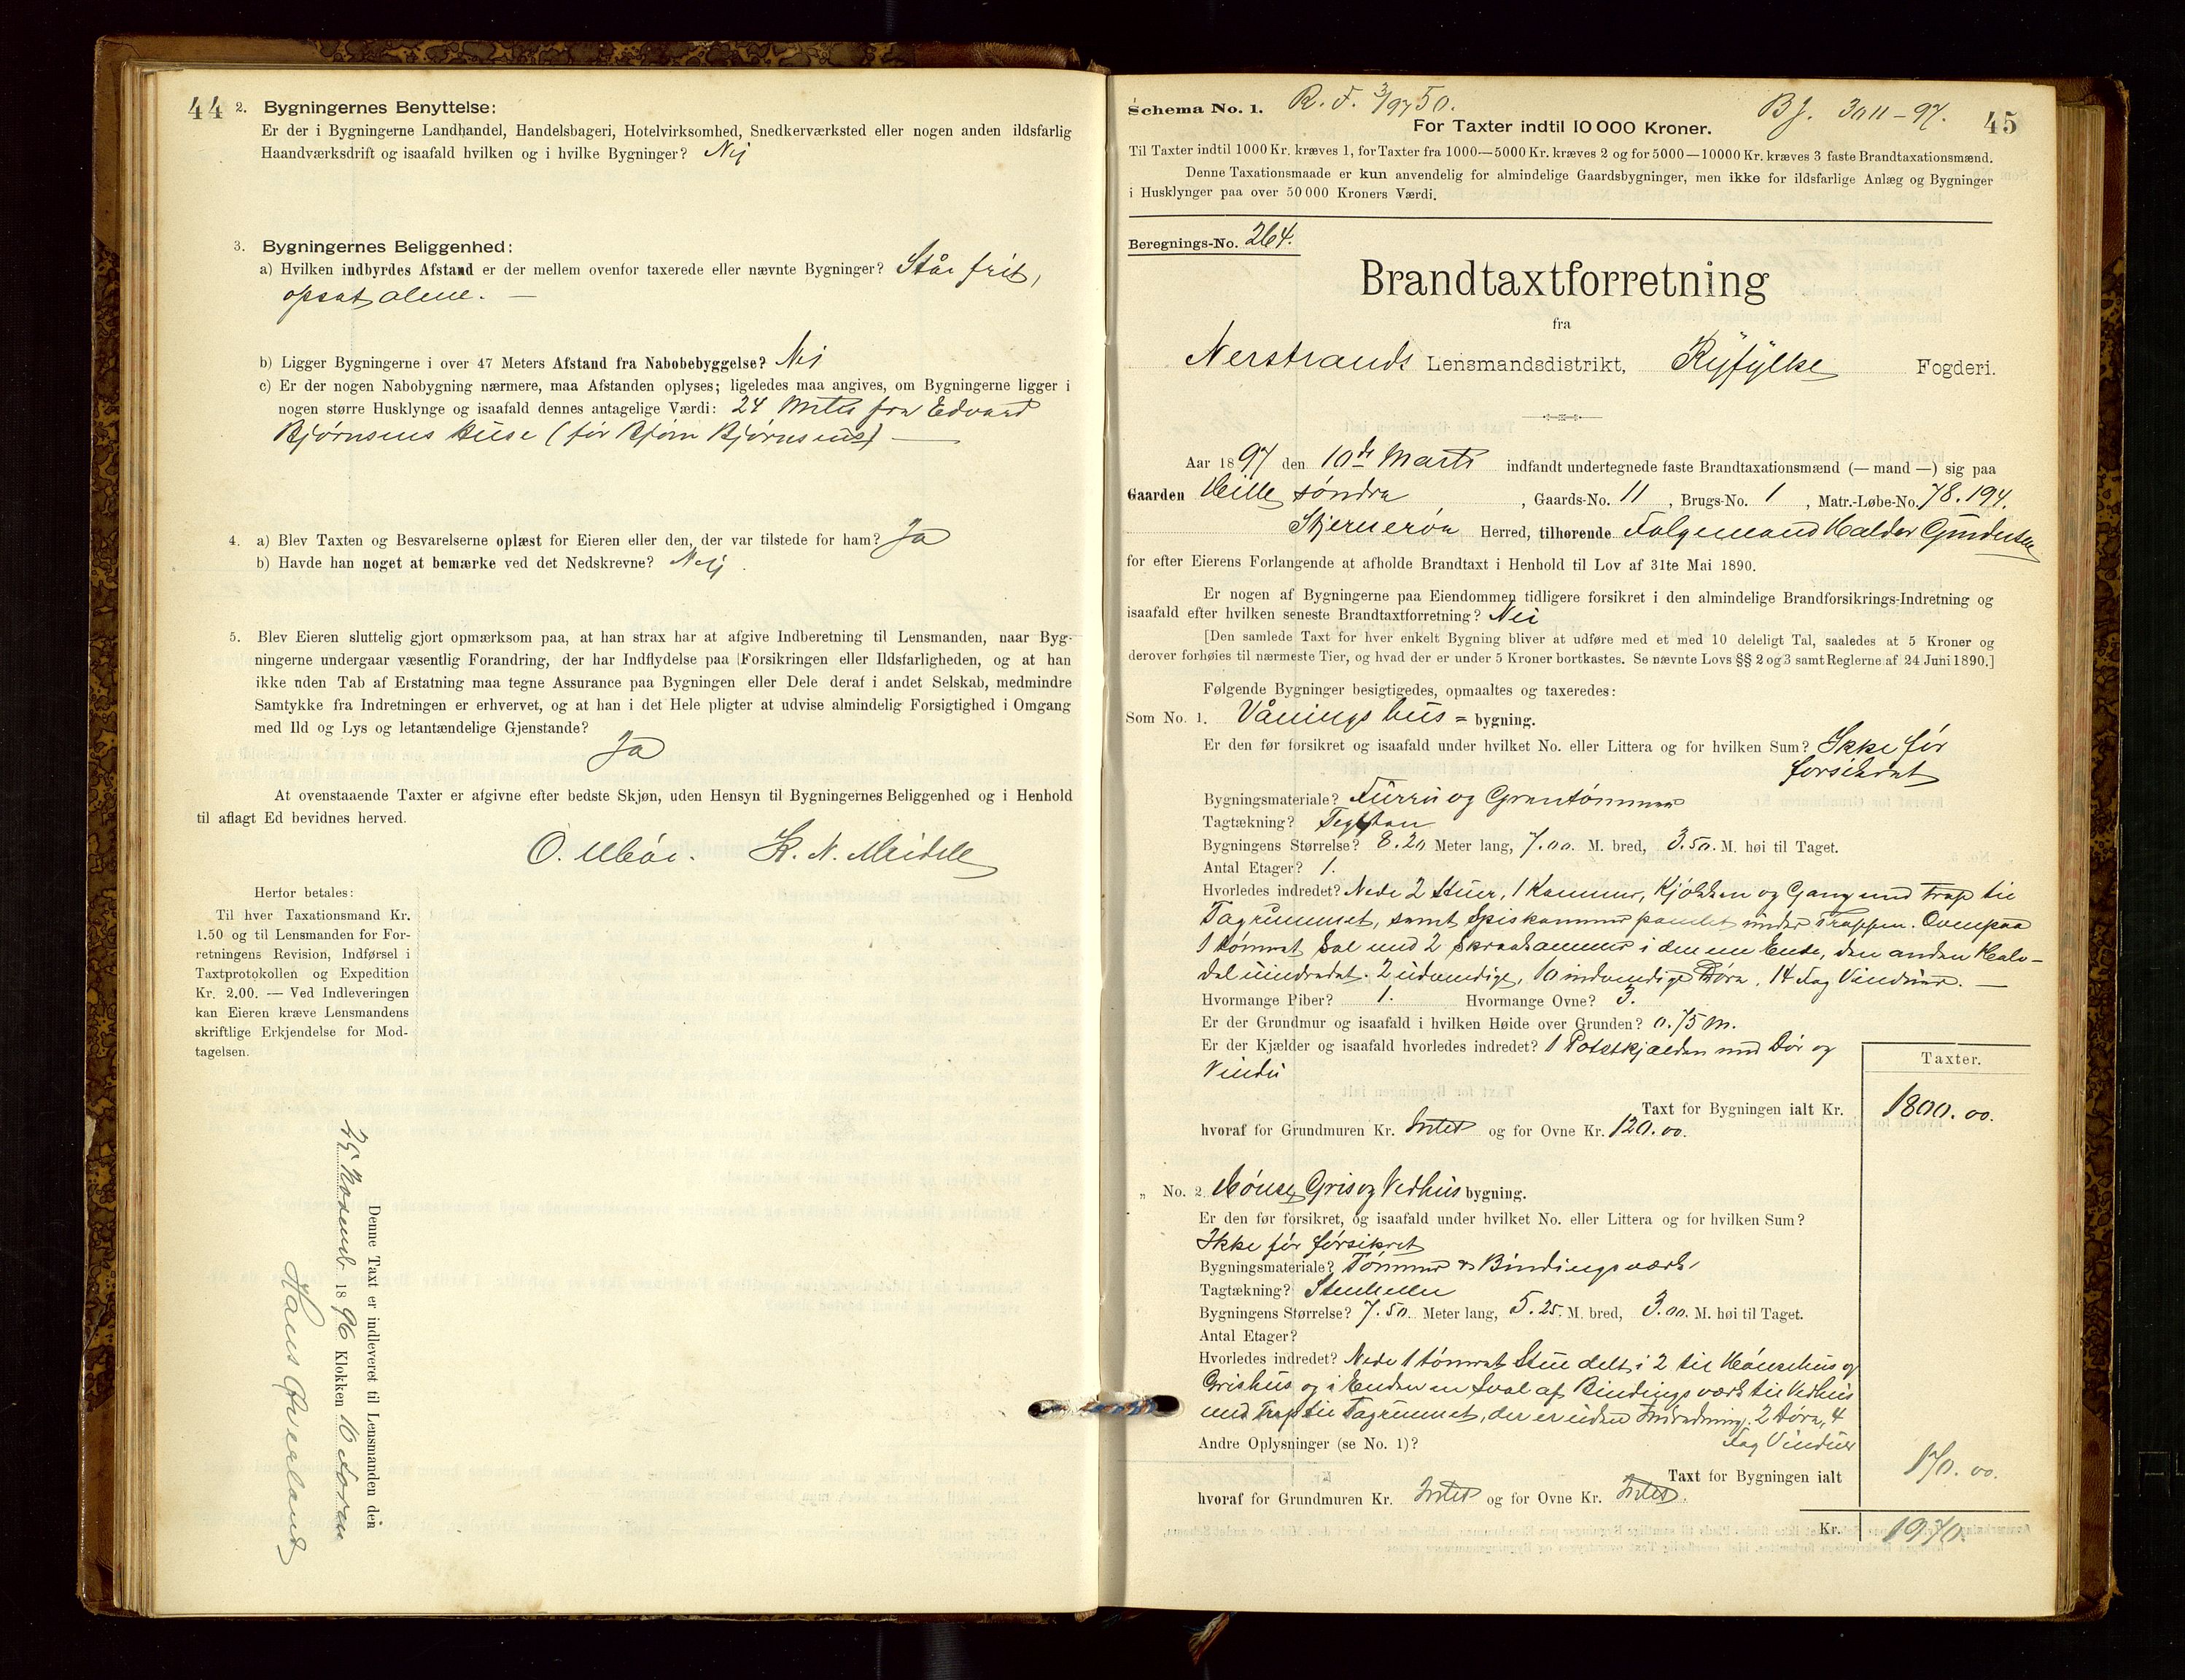 44
2. Bygningernes Benyttelse:
Er der i Bygningerne Landhandel, Handelsbageri, Hotelvirksomhed, Snedkerværksted eller nogen anden ildsfarlig
Haandværksdrift og isaafald hvilken og i hvilke Bygninger? Nei
3. Bygningernes Beliggenhed:
a) Hvilken indbyrdes Afstand er der mellem ovenfor taxerede eller nævnte Bygninger? Står frit,
opsat alene. —
b) Ligger Bygningerne i over 47 Meters Afstand fra Nabobebyggelse? Nei
c) Er der nogen Nabobygning nærmere, maa Afstanden oplyses; ligeledes maa angives, om Bygningerne ligger i
nogen større Husklynge og isaafald dennes antagelige Værdi: 24 Meter fra Edvard
Bjørnsens Huse (før Bjørn Bjørnsens) —
4. a) Blev Taxten og Besvarelserne oplæst for Eieren eller den, der var tilstede for ham? Ja
b) Havde han noget at bemærke ved det Nedskrevne? Nej.
5. Blev Eieren sluttelig gjort opmærksom paa, at han strax har at afgive Indberetning til Lensmanden, naar Byg-
ningerne undergaar væsentlig Forandring, der har Indflydelse paa Forsikringen eller Ildsfarligheden, og at han
ikke uden Tab af Erstatning maa tegne Assurance paa Bygningen eller Dele deraf i andet Selskab, medmindre
Samtykke fra Indretningen er erhvervet, og at han i det Hele pligter at udvise almindelig Forsigtighed i Omgang
med Ild og Lys og letantændelige Gjenstande?
Ja
At ovenstaaende Taxter er afgivne efter bedste Skjøn, uden Hensyn til Bygningernes Beliggenhed og i Henhold
til aflagt Ed bevidnes herved.
K. N. Meidell
Herfor betales:
Til hver Taxationsmand Kr.
1.50 og til Lensmanden for For-
retningens Revision, Indførsel i
Taxtprotokollen og Expedition
Kr. 2.00. — Ved Indleveringen
kan Eieren kræve Lensmandens
skriftlige Erkjendelse for Mod-
tagelsen.
Denne Taxt er indleveret til Lensmanden den
25 Novemb. 1896 Klokken 10 Form
Hans
Schema No. 1. R. F. 3/97 50. Bf. 3011-97. 45
For Taxter indtil 10 000 Kroner.
Til Taxter indtil 1000 Kr. kræves 1, for Taxter fra 1000—5000 Kr. kræves 2 og for 5000—10000 Kr. kræves 3 faste Brandtaxationsmænd.
Denne Taxationsmaade er kun anvendelig for almindelige Gaardsbygninger, men ikke for ildsfarlige Anlæg og Bygninger
i Husklynger paa over 50 000 Kroners Værdi.
Beregnings-No. 264.
Brandtaxtforretning
fra
Nerstrands Lensmandsdistrikt, Ryfylke Fogderi.
Aar 1897 den 10de Marts indfandt undertegnede faste Brandtaxationsmænd (— mand —) sig paa
Gaarden Helle søndra, Gaards-No. 11, Brugs-No. 1, Matr.-Løbe-No. 78.194.
Stjernerøn Herred, tilhørende Folgemand Haldor Gundersen
for efter Eierens Forlangende at afholde Brandtaxt i Henhold til Lov af 31te Mai 1890.
Er nogen af Bygningerne paa Eiendommen tidligere forsikret i den almindelige Brandforsikrings-Indretning og
isaafald efter hvilken seneste Brandtaxtforretning? Nei
[Den samlede Taxt for hver enkelt Bygning bliver at udføre med et med 10 deleligt Tal, saaledes at 5 Kroner og
derover forhøies til nærmeste Tier, og hvad der er under 5 Kroner bortkastes. Se nævnte Lovs §§ 2 og 3 samt Reglerne af 24 Juni 1890.]
Følgende Bygninger besigtigedes, opmaaltes og taxeredes:
Som No. 1. Våningshus = bygning.
Er den før forsikret og isaafald under hvilket No. eller Littera og for hvilken Sum? Ikke før
forsikret
Bygningsmateriale? Furru og Grantømmer
Tagtækning? Teglsten
Bygningens Størrelse? 8.20 Meter lang, 7.00. M. bred, 3.50. M. høi til Taget.
Antal Etager? 1.
Hvorledes indredet? Nede 2 Stuer, 1 Kammer, Kjøkken og Gang med Trap til
Tagrummet, samt Spiskammer panelet under Trappen. Ovenpaa
1 tømret Sal med 2 Skraakammer i den ene Ende, den anden Halv-
del uindredet. 2 udvendige, 10 indvendige Døra, 14 Fag Vinduer. —
Hvormange Piber? 1. Hvormange Ovne? 3.
Er der Grundmur og isaafald i hvilken Høide over Grunden? 0.75 M.
Er der Kjælder og isaafald hvorledes indredet? 1 Potetkjælder med Dør og
Vindu
Taxter.
Taxt for Bygningen ialt Kr. 1800.00.
hvoraf for Grundmuren Kr. Intet og for Ovne Kr. 120.00.
„ No. 2 Hønse, Gris og Vedhus bygning.
Er den før forsikret, og isaafald under hvilket No. eller Littera og for hvilken Sum?
Ikke før forsikret
Bygningsmateriale? Tømmer & Bindingsværk
Tagtækning? Stenheller
Bygningens Størrelse? 7.50. Meter lang, 5.25. M. bred, 3.00. M. høi til Taget.
Antal Etager?
Hvorledes indredet? Nede 1 tømret Stue delt i 2 til Hønsehus og
Grishus og i Enden en Sval af Bindingsværk til Vedhus
med Trap til Tagrummet, der er uden Indredning. 2 Døra, 4
Fag Vinduer
Andre Oplysninger (se No. 1)?
Taxt for Bygningen ialt 170.00.
hvoraf for Grundmuren Kr. Intet og for Ovne Kr. Intet.
Kr. 1970.